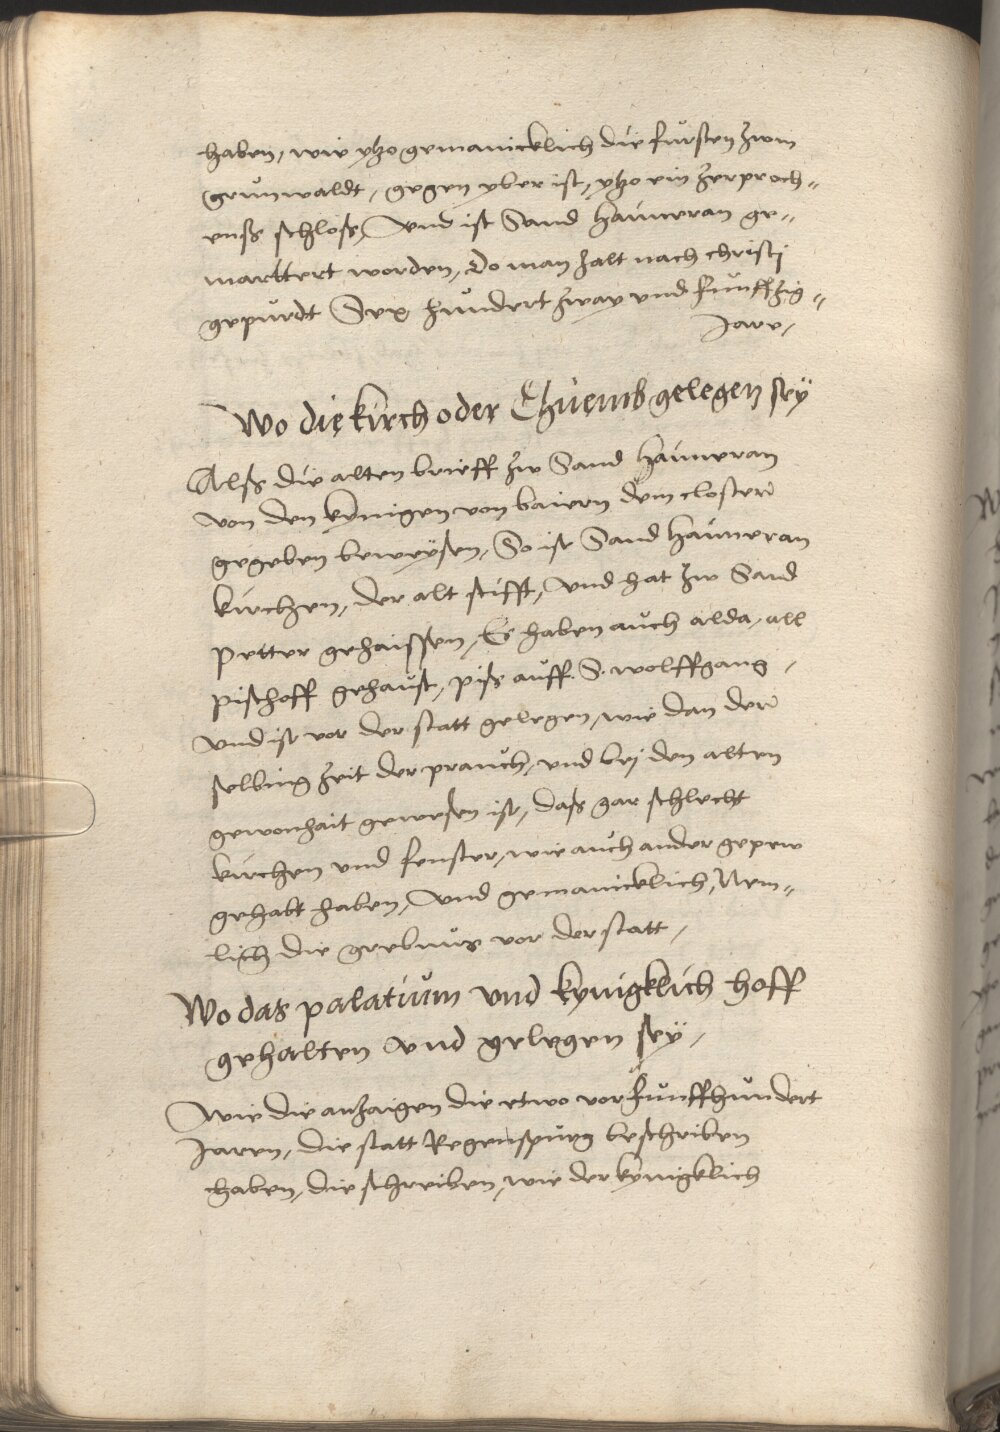 haben, wie ytzo gemainicklich die fursten zwm
grunwaldt, gegen yber ist, ytzo ein zerproch„
enß schloß, Vnd ist Sand haimeran ge„
marttert worden, do man zalt nach christj
gepurdt Sex hundert zway vnd funffzig„
Jare,
Wo die kirch oder Thuemb gelegen sey
Alß die alten brieff zw Sand haimeran
von den kynigen von baiern dem closter
gegeben beweysen, So ist Sand haimeran
kirchen, der alt stifft, vnd hat zw Sand
petter gehaissen, Es haben auch alda, all
pischoff gehaust, piß auff. S. wolffgang,
vnd ist vor der statt gelegen, wie dan der
selbing zeit der prauch, vnd bej den alten
gewonhait gewesen ist, daß gar schlecht
kirchen vnd fenster, wie auch ander gepew
gehabt haben, Vnd gemainicklich, Nem„
lich die grebnus vor der statt,
Wo das palatium vnd kynigklich hoff
gehalten vnd gelegen sey,
Wie die anzaigen die etwo vor funffhundert
Jaren, die statt Regenspurg beschriben
haben, die schreiben, wie der kynigklich